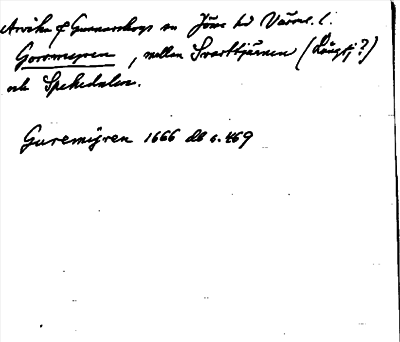 Arvika f Gunnarskogs sn Jösse hd Värml. l.
Gorrmyren, mellan Svarttjärnen (Långtj?)
och Spekedalen.
Guremÿren 1666 db s. 469